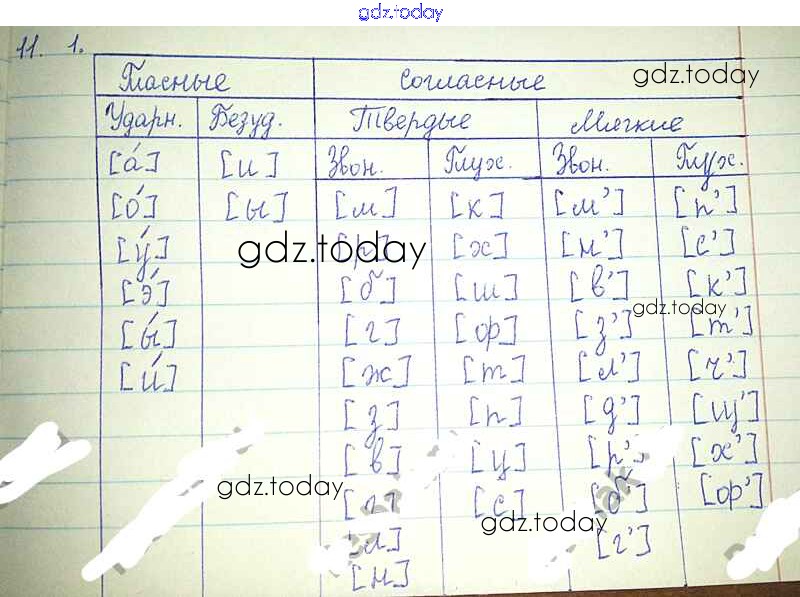 gdz.today
11. 1.
Гласные Согласные gdz.today
Ударн. Безуд. Твердые Мягкие
[а́] [и] Звон. Глух. Звон. Глух.
[о́] [ы] [м] [к] [м'] [п']
[у́] gdz.today [р] [х] [н'] [с']
[э́] [б] [ш] [в'] [к']
gdz.today
[ы́] [г] [ф] [з'] [т']
[и́] [ж] [т] [л'] [ч']
[з] [п] [д'] [щ']
[в] [ц] [р'] [х']
gdz.today [с] [б'] [ф']
gdz.today
[л] [г']
[н]